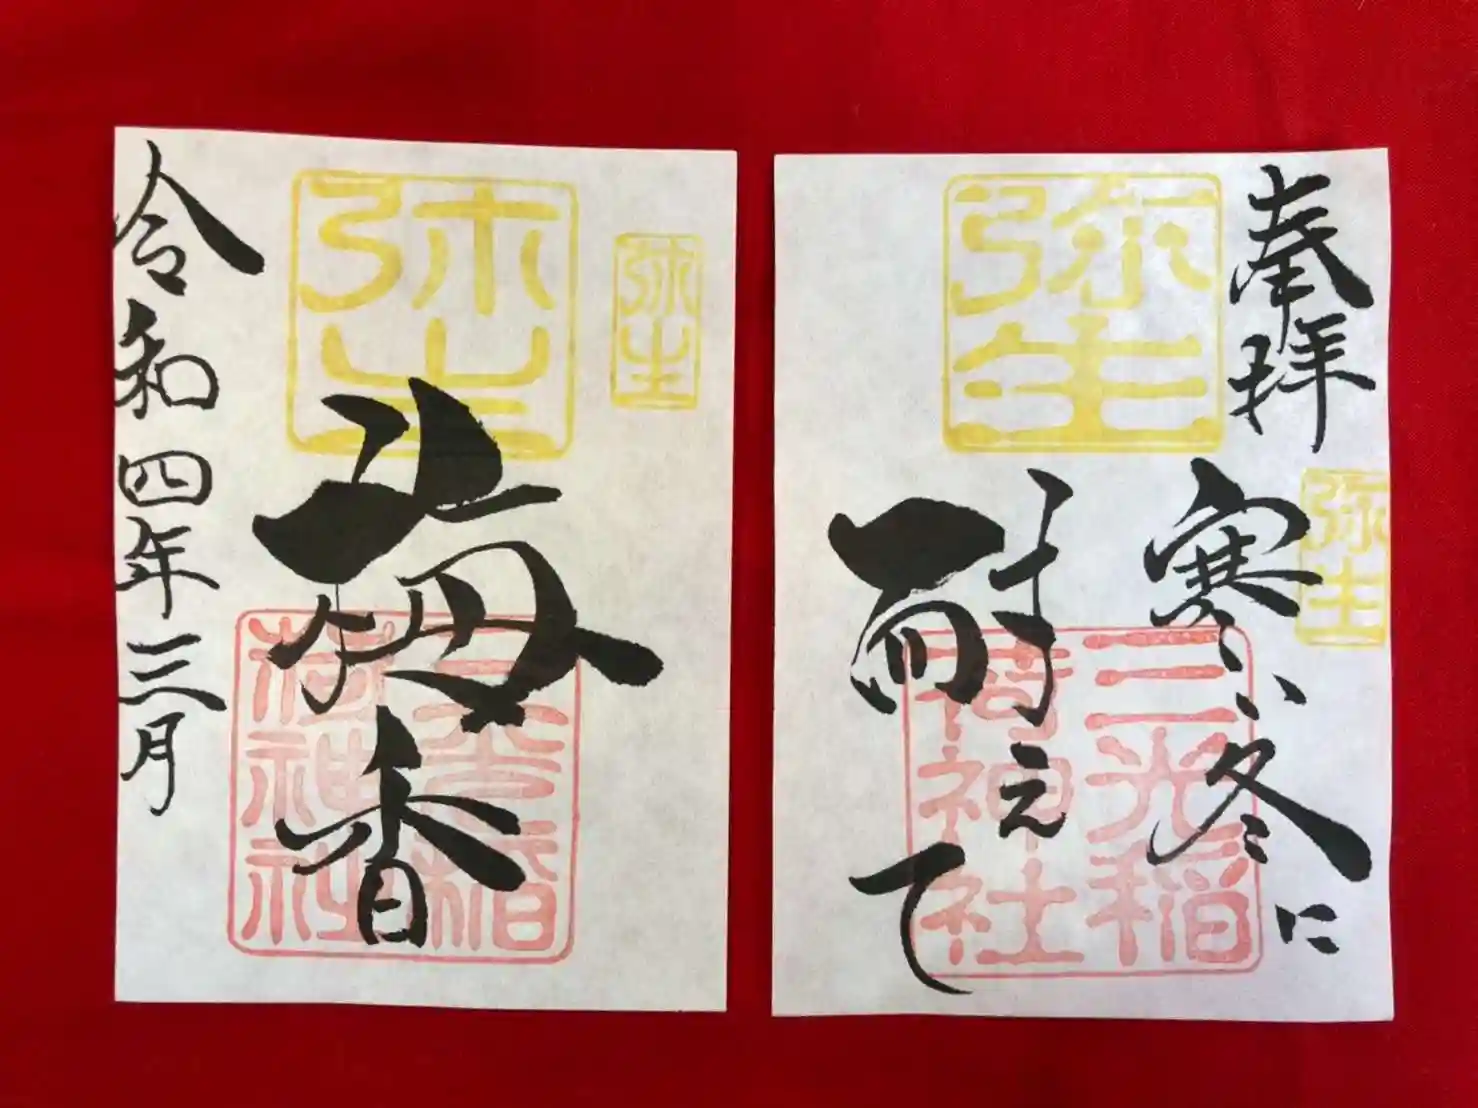 奉拝
弥生
弥生
寒い冬に
耐えて
三光稲
荷神社
弥生
弥生
梅香
三光稲
荷神社
令和四年三月